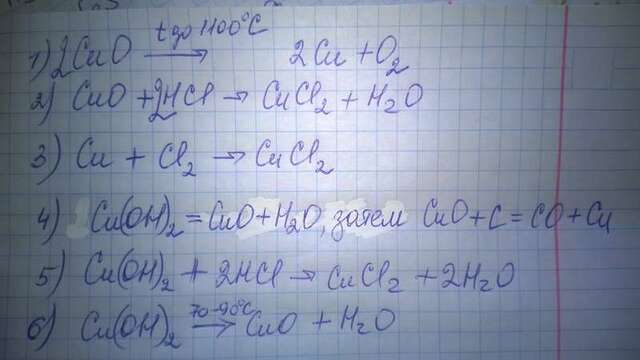 1) 2CuO t до 1100°C → 2Cu + O₂
2) CuO + 2HCl → CuCl₂ + H₂O
3) Cu + Cl₂ → CuCl₂
4) Cu(OH)₂ = CuO + H₂O, затем CuO + C = CO + Cu
5) Cu(OH)₂ + 2HCl → CuCl₂ + 2H₂O
6) Cu(OH)₂ 70-90°C → CuO + H₂O